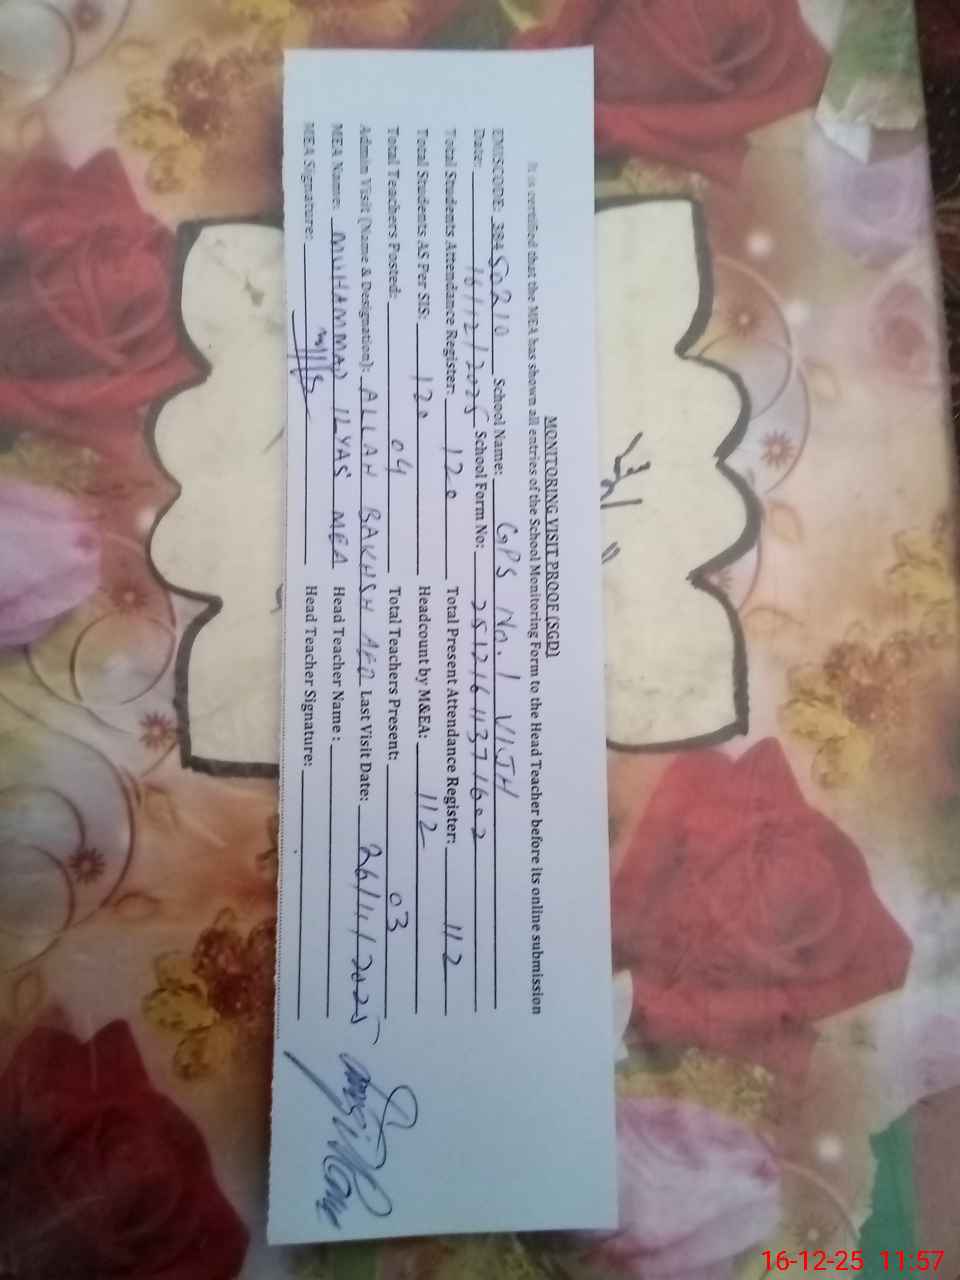 MONITORING VISIT PROOF (SGD)
It is certified that the MEA has shown all entries of the School Monitoring Form to the Head Teacher before its online submission
EMISCODE: 38450210 School Name: GPS No. 1 VIJH
Date: 16/12/2025 School Form No: 25121611371602
Total Students Attendance Register: 120 Total Present Attendance Register: 112
Total Students AS Per SIS: 120 Headcount by M&EA: 112
Total Teachers Posted: 04 Total Teachers Present: 03
Admin Visit (Name & Designation): ALLAH BAKHSH AEO Last Visit Date: 26/11/2025
MEA Name: MUHAMMAD ILYAS MEA Head Teacher Name :
MEA Signature: Head Teacher Signature:
16-12-25 11:57